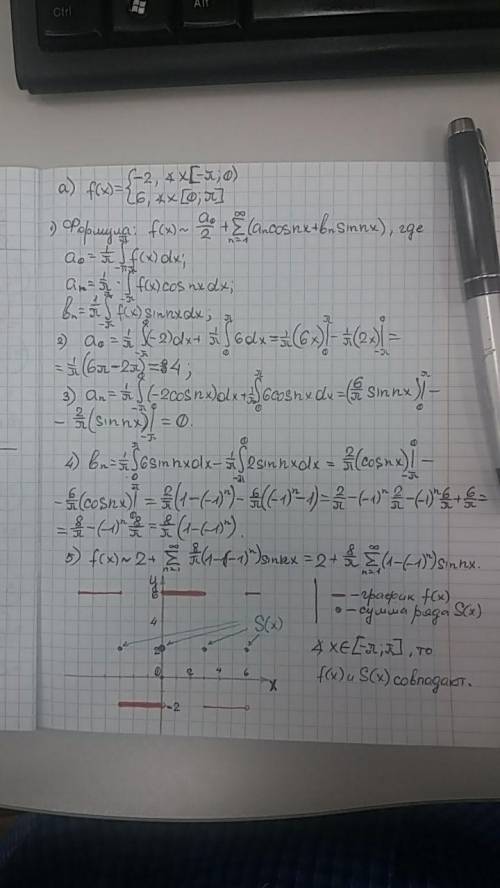 Ctrl
Alt
а) f(x)={-2, ∢x[-π;0)
6, ∢x[0;π]
1) Формула: f(x)~ a₀/2 + ∑_{n=1}^{∞}(aₙcosnx+bₙsinnx), где
a₀=1/π ∫_{-π}^{π} f(x)dx;
aₙ=1/π·∫_{-π}^{π} f(x)cosnxdx;
bₙ=1/π ∫_{-π}^{π} f(x)sinnxdx;
2) a₀=1/π ∫_{-π}^{0}(-2)dx+ 1/π ∫_{0}^{π} 6dx=1/π(6x)|_{0}^{π} - 1/π(2x)|_{-π}^{0}=
=1/π(6π-2π)=4;
3) aₙ=1/π ∫_{-π}^{0}(-2cosnx)dx+1/π ∫_{0}^{π} 6cosnxdx=(6/π sinnx)|_{0}^{π} -
- 2/π(sinnx)|_{-π}^{0}=0.
4) bₙ=1/π ∫_{0}^{π} 6sinnxdx-1/π ∫_{-π}^{0} 2sinnxdx = 2/π(cosnx)|_{-π}^{0} -
- 6/π(cosnx)|_{0}^{π}=2/π(1-(-1)ⁿ)-6/π((-1)ⁿ-1)=2/π-(-1)ⁿ2/π-(-1)ⁿ6/π+6/π=
=8/π-(-1)ⁿ8/π=8/π(1-(-1)ⁿ).
5) f(x)~2+ ∑_{n=1}^{∞} 8/π(1-(-1)ⁿ)sinnx=2+8/π ∑_{n=1}^{∞}(1-(-1)ⁿ)sinnx.
y
6
4
2
0
4 6
x
-2
S(x)
— -график f(x)
∘ -сумма ряда S(x)
∢ x∈[-π;π], то
f(x) и S(x) совпадают.